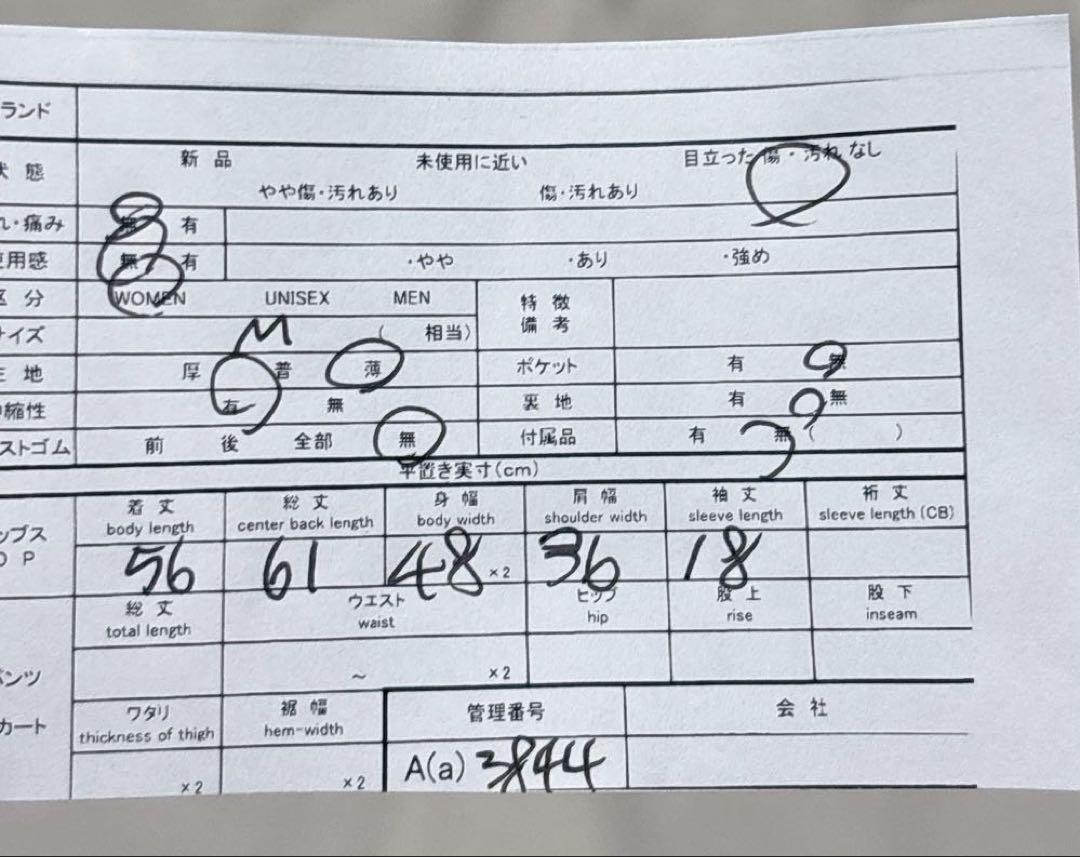 ランド
状態 新品 未使用に近い 目立った傷・汚れなし
やや傷・汚れあり 傷・汚れあり
れ・痛み 無 有
用感 無 有 ・やや ・あり ・強め
区分 WOMEN UNISEX MEN 特徴
備考
イズ M ( 相当)
地 厚 普 薄 ポケット 有 無
縮性 有 無 裏地 有 無
ストゴム 前 後 全部 無 付属品 有 無 ( )
平置き実寸(cm)
ップス 着丈 総丈 身幅 肩幅 袖丈 裄丈
body length center back length body width shoulder width sleeve length sleeve length (CB)
O P 56 61 48 ×2 36 18
総丈 ウエスト ヒップ 股上 股下
total length waist hip rise inseam
ンツ ~ ×2
カート ワタリ 裾幅 管理番号 会社
thickness of thigh hem-width
×2 ×2 A(a) 3844